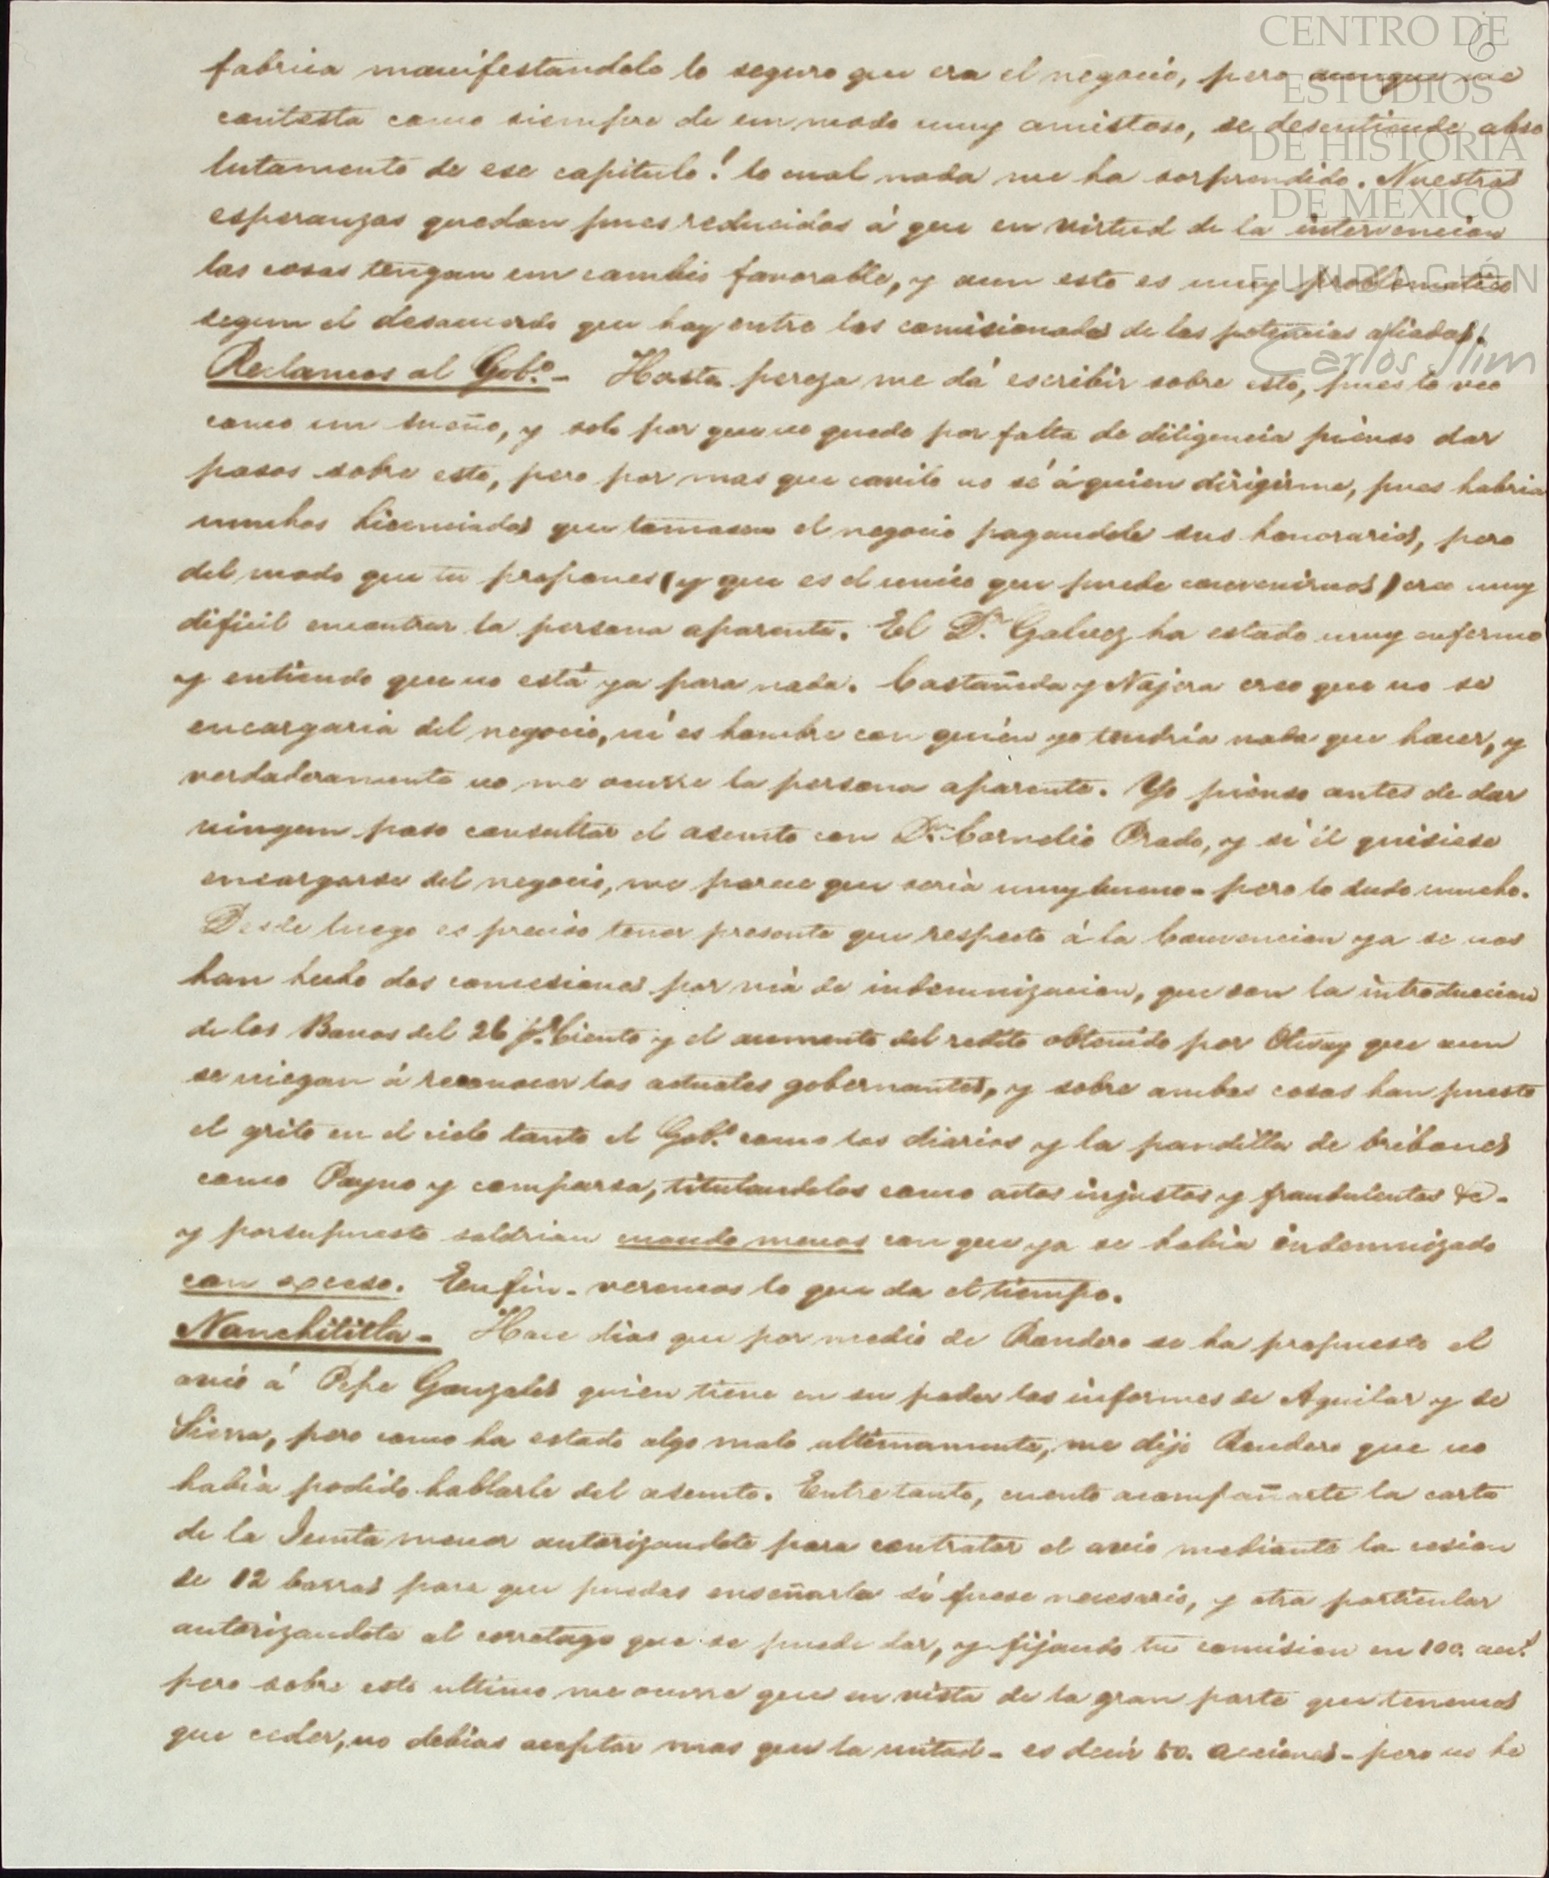 CENTRO DE
ESTUDIOS
DE HISTORIA
DE MÉXICO
FUNDACIÓN
Carlos Slim
6
fabrica manifestandole lo seguro que era el negocio, pero aunque me
contesta como siempre de un modo muy amistoso, se desentiende abso
lutamente de ese capitulo! lo cual nada me ha sorprendido. Nuestras
esperanzas quedan pues reducidas á que en virtud de la intervencion
las cosas tengan un cambio favorable, y aun esto es muy problematico
segun el desacuerdo que hay entre los comisionados de las potencias aliadas.
Reclamos al Gob.o - Hasta pereza me dá escribir sobre esto, pues lo veo
como un sueño, y solo por que no quede por falta de diligencia pienso dar
pasos sobre esto, pero por mas que cavilo no sé á quien dirigirme, pues habria
muchos licenciados que tomasen el negocio pagandole sus honorarios, pero
del modo que tu propones (y que es el unico que puede convenirnos) creo muy
dificil encontrar la persona aparente. El D.r Galvez ha estado muy enfermo
y entiendo que no está ya para nada. Castañeda y Najera creo que no se
encargaria del negocio, ni es hombre con quien yo tendria nada que hacer, y
verdaderamente no me ocurre la persona aparente. Yo pienso antes de dar
ningun paso consultar el asunto con D.n Cornelio Prado, y si él quisiese
encargarse del negocio, me parece que seria muy bueno - pero lo dudo mucho.
Desde luego es preciso tener presente que respecto á la Convencion ya se nos
han hecho dos concesiones por viá de indemnizacion, que son la introduccion
de los Bonos del 26 p.r Ciento y el aumento del redito obtenido por Olivay que aun
se niegan á reconocer los actuales gobernantes, y sobre ambas cosas han puesto
el grito en el cielo tanto el Gob.o como los diarios y la pandilla de bribones
como Payno y comparsa, titulandolos como actos injustos y fraudulentos &c -
y por supuesto saldrian cuando menos con que ya se habia indemnizado
con exceso. En fin - veremos lo que da el tiempo.
Nanchititla - Hace dias que por medio de Rondero se ha propuesto el
avio á Pepe Gonzales quien tiene en su poder los informes de Aguilar y de
Sierra, pero como ha estado algo malo ultimamente, me dijo Rondero que no
habia podido hablarle del asunto. Entretanto, cuento acompañarte la carta
de la Junta menor autorizandote para contratar el avio mediante la cesion
de 12 barras para que puedas enseñarla si fuese necesario, y otra particular
autorizandote al corretage que se puede dar, y fijando tu comision en 100. acc.s
pero sobre esto ultimo me ocurre que en vista de la gran parte que tenemos
que ceder, no debias aceptar mas que la mitad - es decir 50. acciones - pero us he